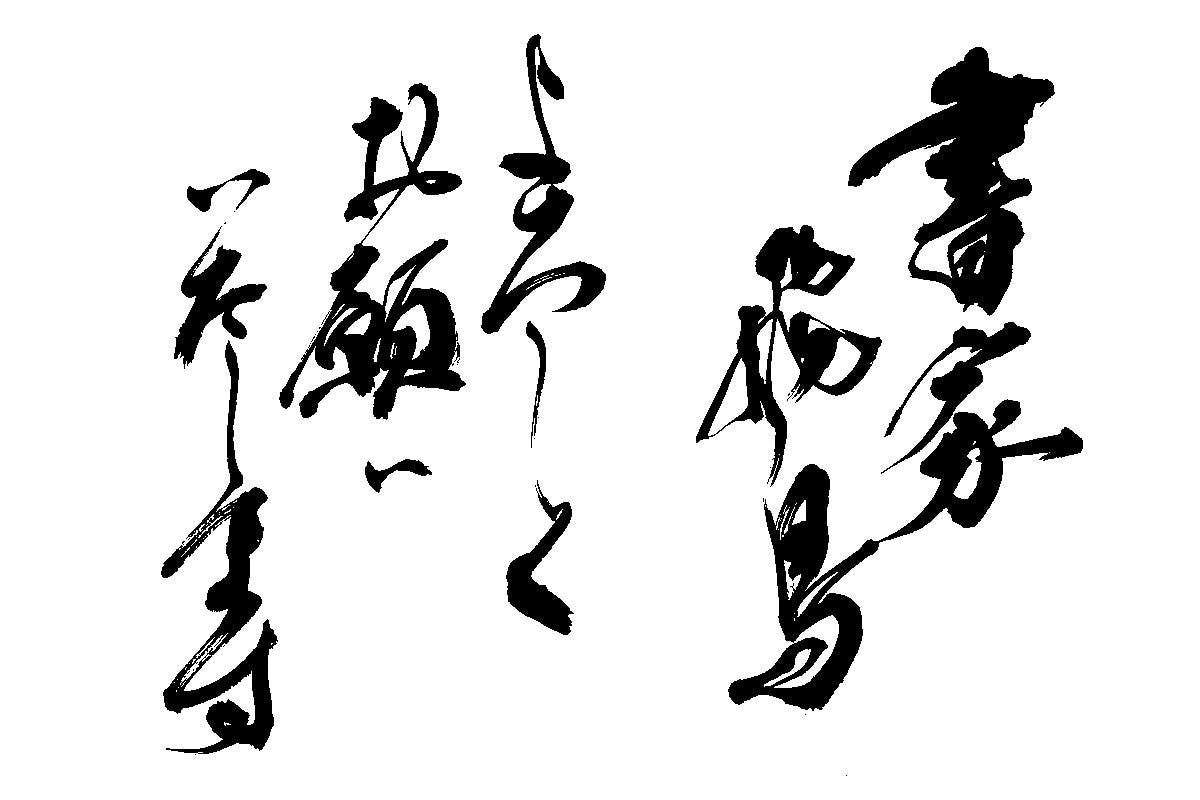 書家
よろしく
お願い
いたします